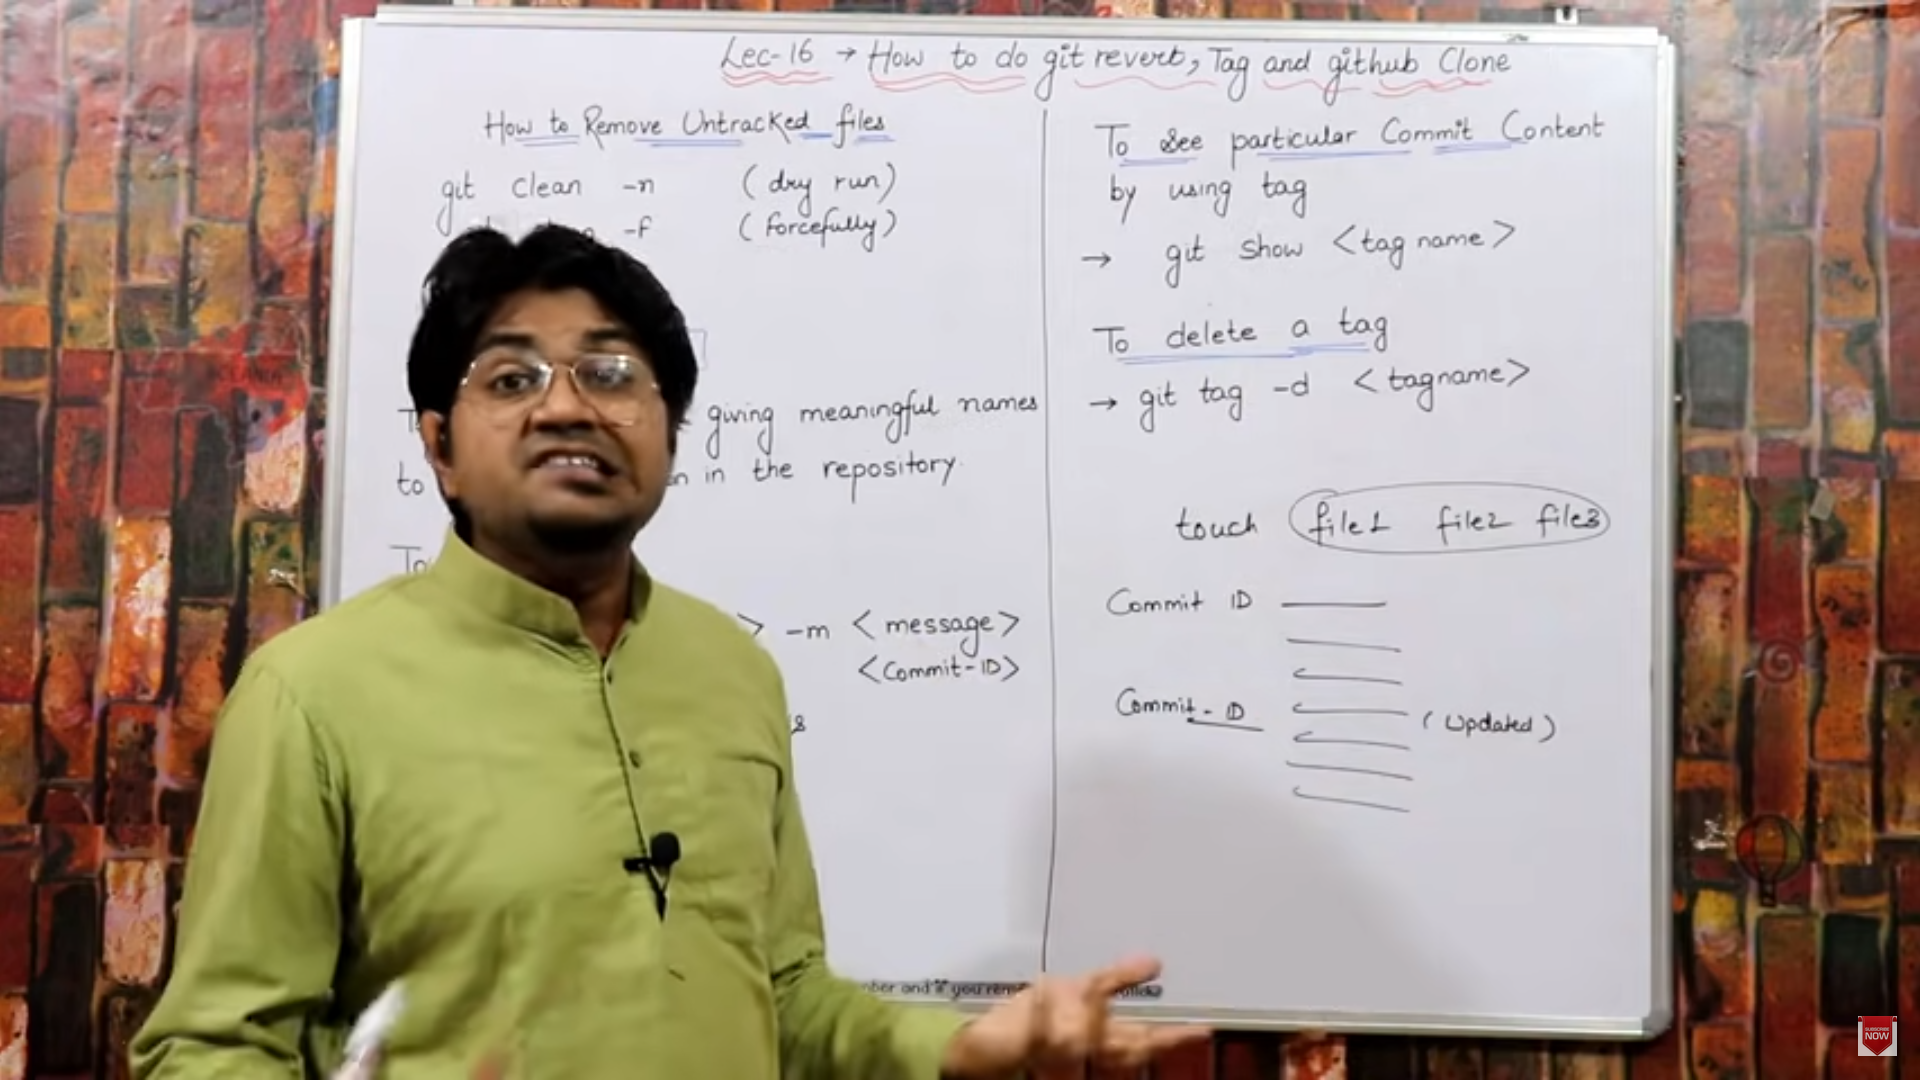 Lec-16 → How to do git revert, Tag and github Clone
How to Remove Untracked files
git clean -n (dry run)
-f (forcefully)
giving meaningful names
to in the repository.
To
> -m <message>
<Commit-ID>
To see particular Commit Content
by using tag
→ git show <tag name>
To delete a tag
→ git tag -d <tagname>
touch file1 file2 file3
Commit ID
Commit-ID (updated)
and if you rem
SUBSCRIBE
NOW